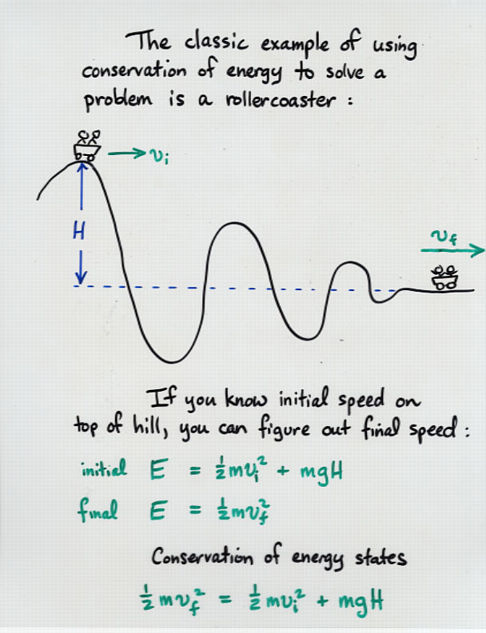 The classic example of using
conservation of energy to solve a
problem is a rollercoaster :
v_i
H
v_f
If you know initial speed on
top of hill, you can figure out final speed :
initial E = ½mv_i² + mgH
final E = ½mv_f²
Conservation of energy states
½mv_f² = ½mv_i² + mgH